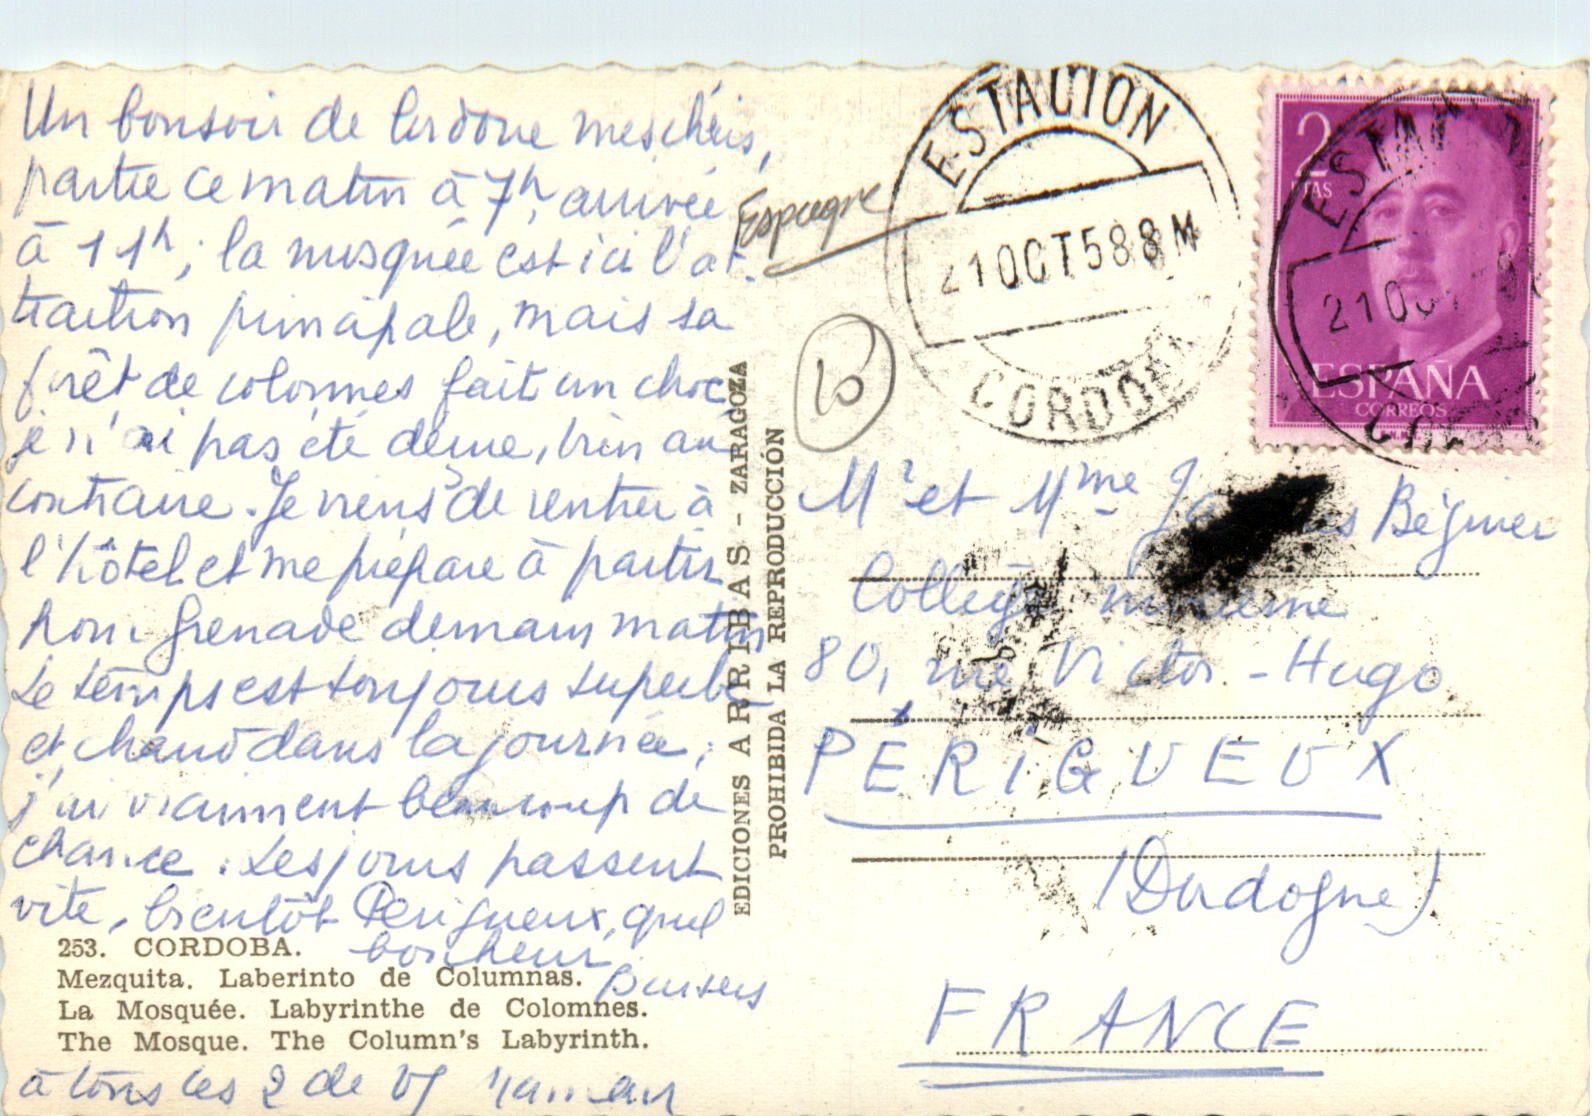 Un bonsoir de Cordoue mes chéris,
partie ce matin à 7h, arrivée
à 11h; la mosquée est ici l'at-
traction principale, mais sa
forêt de colonnes fait un choc
je n'ai pas été déçue, bien au
contraire. Je viens de rentrer à
l'hôtel et me prépare à partir
pour Grenade demain matin
Le temps est toujours superbe
et chaud dans la journée;
j'ai vraiment beaucoup de
chance. Les jours passent
vite, bientôt Périgueux, quel
bonheur
Baisers
à tous les 2 de
253. CORDOBA.
Mezquita. Laberinto de Columnas.
La Mosquée. Labyrinthe de Colomnes.
The Mosque. The Column's Labyrinth.
EDICIONES ARRIBAS - ZARAGOZA
PROHIBIDA LA REPRODUCCIÓN
Espagne
10
ESTACION
21 OCT 58 8 M
CORDOBA
2
PTAS
ESPAÑA
CORREOS
ESTA
21 OC
Mr et Mme Béginer
Collège moderne
80, rue Victor-Hugo
PÉRIGUEUX
(Dordogne)
FRANCE